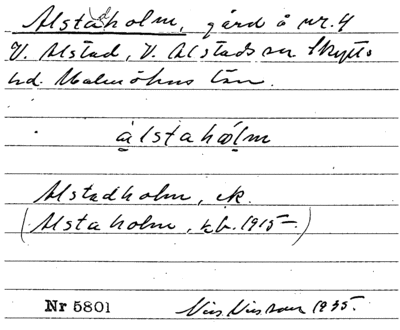 Alstadholm, gård å nr. 4
V. Alstad, V. Alstads sn Skytts
hd. Malmöhus län.
ålstahólm
Alstadholm, ek.
(Alstaholm, kb. 1915–)
Nr 5801 Nils Nilsson 1935.